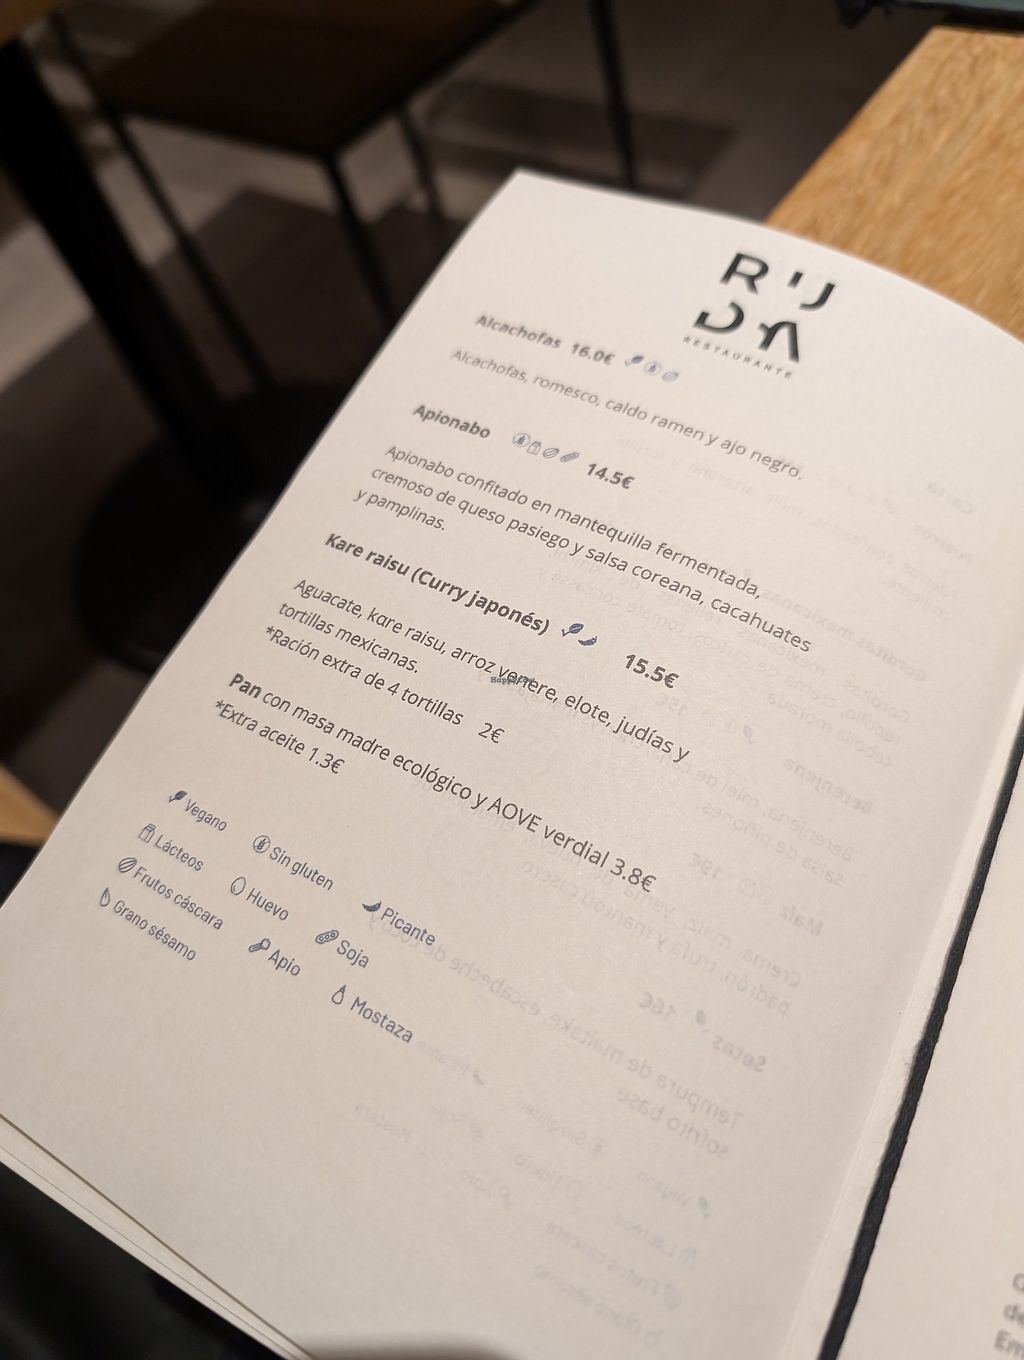 RUDA
RESTAURANTE
Alcachofas 16.0€
Alcachofas, romesco, caldo ramen y ajo negro.
Apionabo 14.5€
Apionabo confitado en mantequilla fermentada,
cremoso de queso pasiego y salsa coreana, cacahuates
y pamplinas.
Kare raisu (Curry japonés) 15.5€
Aguacate, kare raisu, arroz venere, elote, judías y
tortillas mexicanas.
*Ración extra de 4 tortillas 2€
Pan con masa madre ecológico y AOVE verdial 3.8€
*Extra aceite 1.3€
Vegano Sin gluten Picante
Lácteos Huevo Soja
Frutos cáscara Apio Mostaza
Grano sésamo